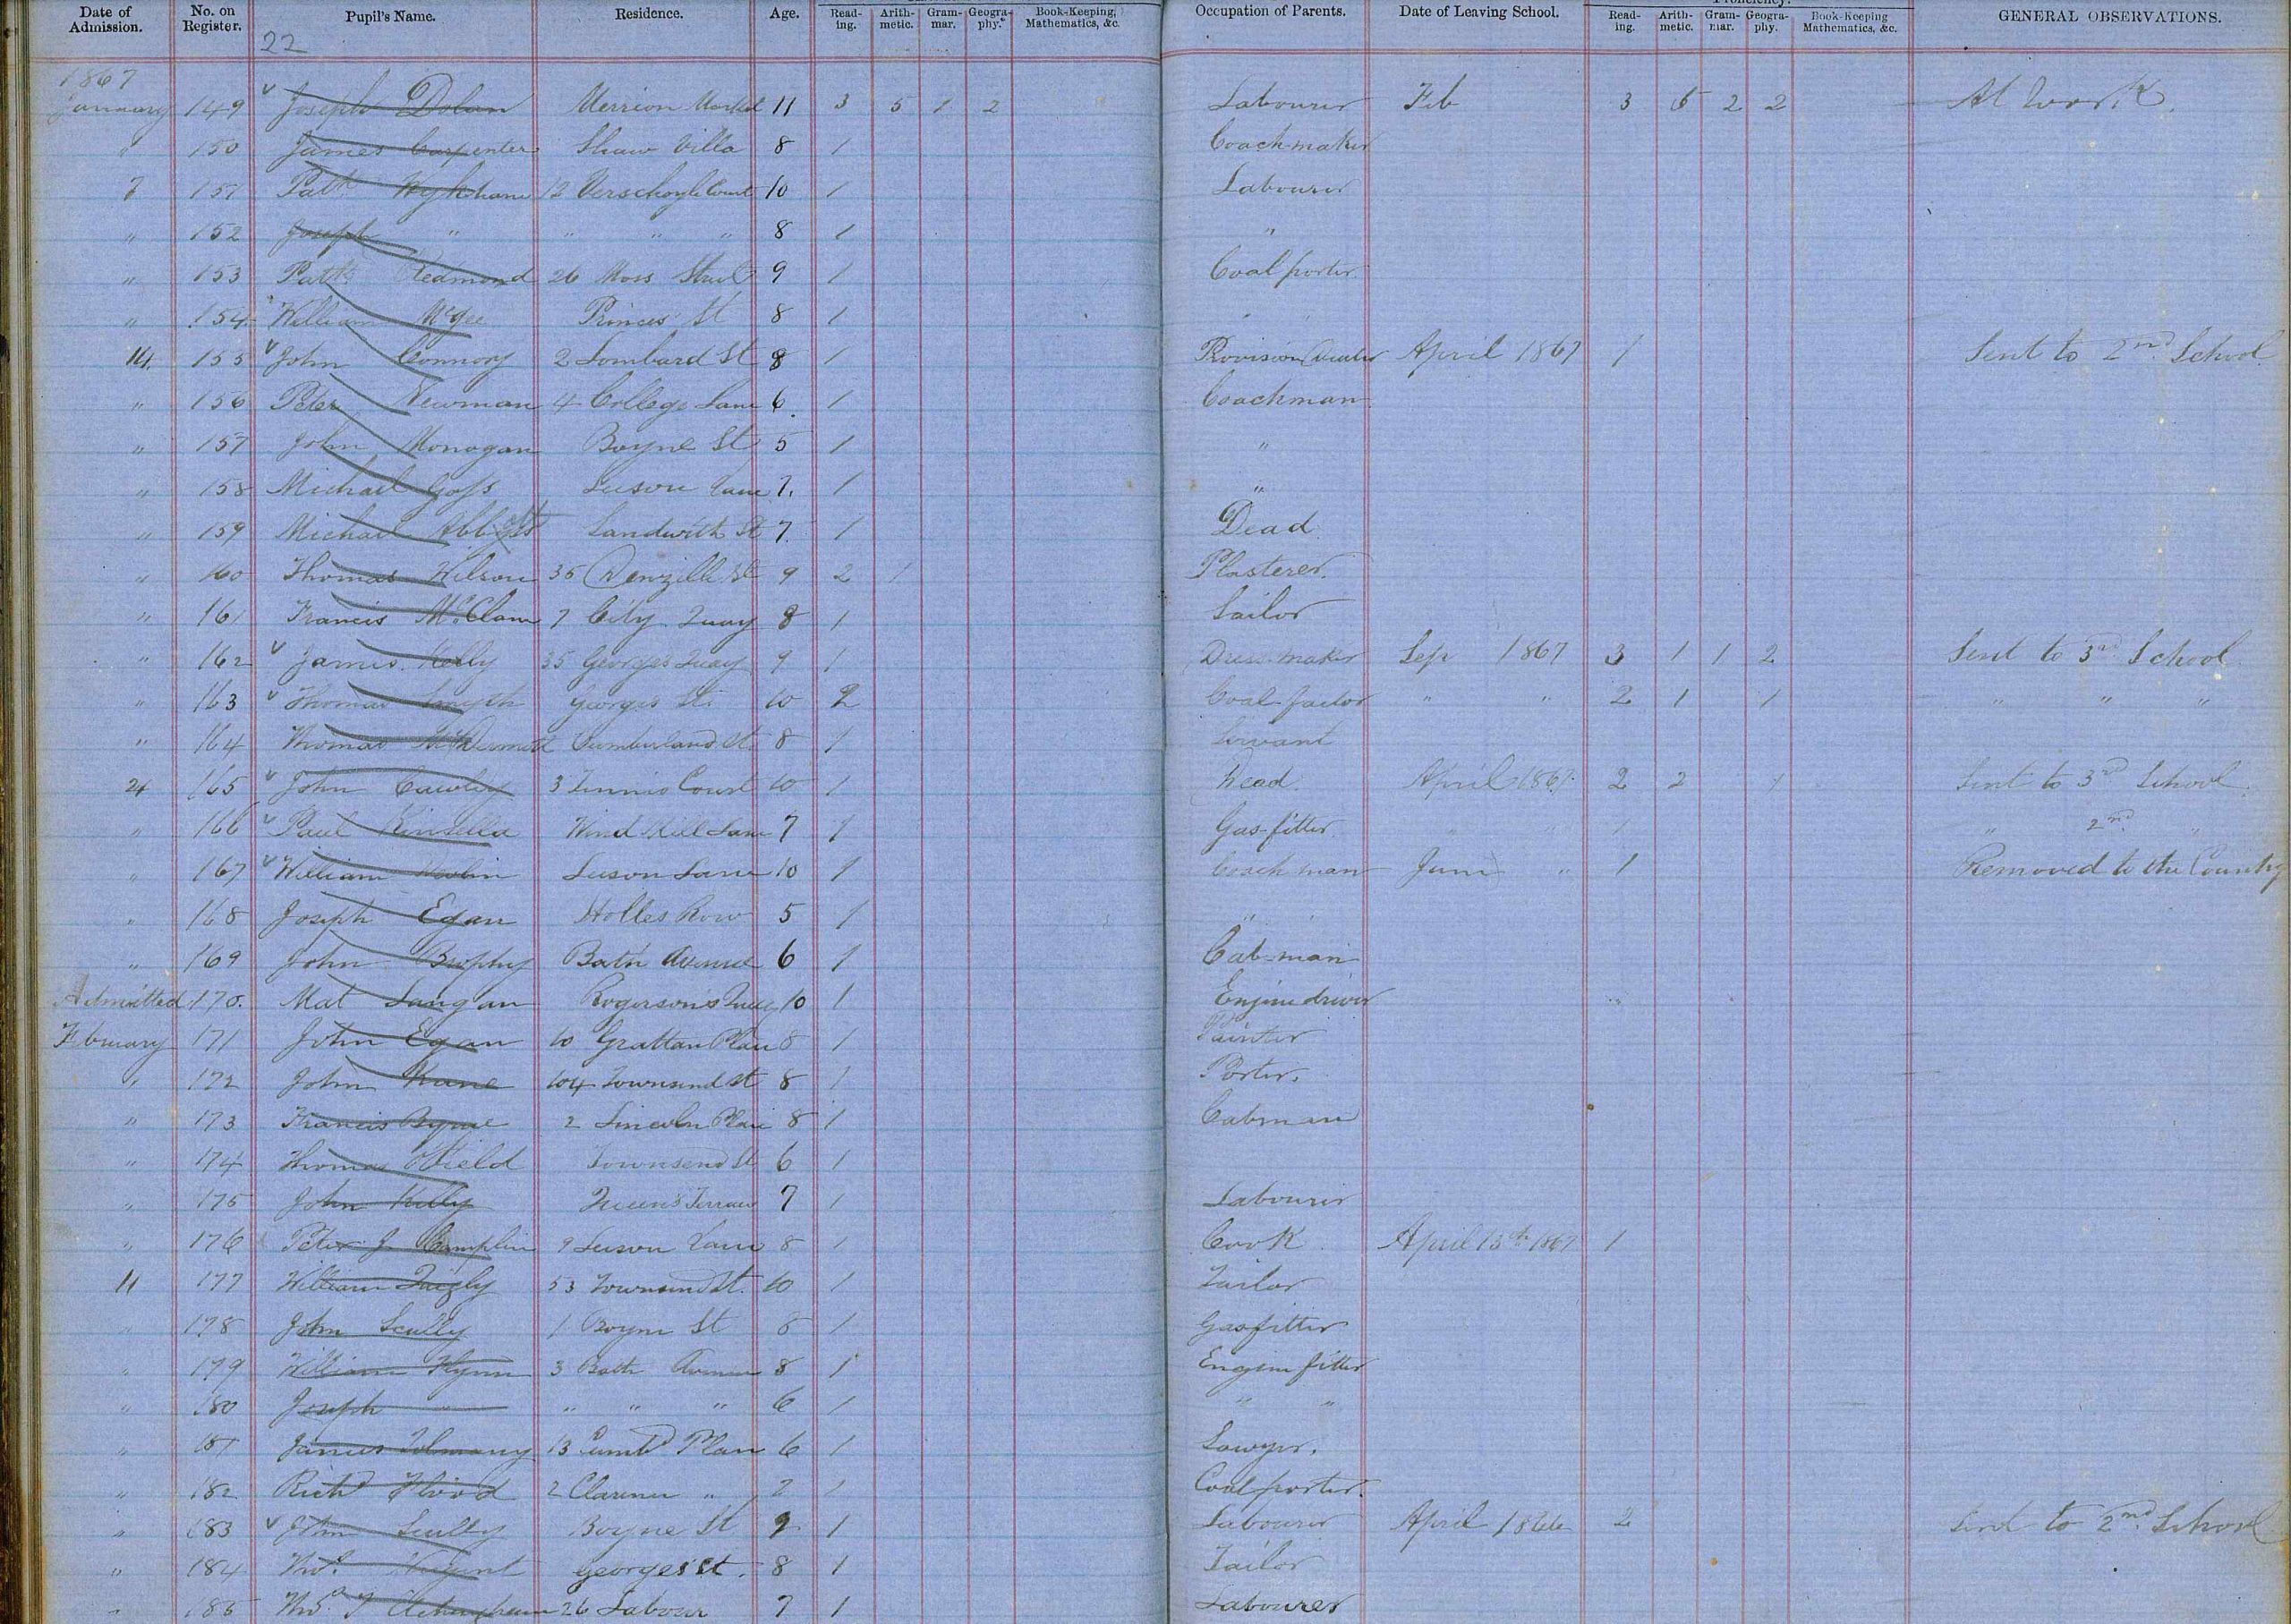 Date of Admission. No. on Register. Pupil's Name. Residence. Age. Read-ing. Arith-metic. Gram-mar. Geogra-phy. Book-Keeping, Mathematics, &c. Occupation of Parents. Date of Leaving School. Proficiency. Read-ing. Arith-metic. Gram-mar. Geogra-phy. Book-Keeping Mathematics, &c. GENERAL OBSERVATIONS.
22
1867
January 149 Joseph Dolan Merrion Market 11 3 5 1 2 Labourer Feb 3 5 2 2 At Work.
" 150 James Carpenter Shaw Villa 8 1 Coach-maker
7 151 Patk. 12 Verschoyle Court 10 1 Labourer
" 152 Joseph " " " " 8 1 "
" 153 Patk. Redmond 26 Moss Street 9 1 Coal porter
" 154 William McGee Princes St 8 1 "
14. 155 John Connory 2 Lombard St 8 1 Provision Dealer April 1867 1 Sent to 2nd School
" 156 Peter Newman 4 College Lane 6. 1 Coachman
" 157 John Monogan Boyne St 5 1 "
" 158 Michael Goss Leeson Lane 7. 1 "
" 159 Michael Abbott Sandwith St 7. 1 Dead
" 160 Thomas Wilson 35 Denzille St 9 2 1 Plasterer.
" 161 Francis McClane 7 City Quay 8 1 Sailor
" 162 James Kelly 35 Georges Quay 9 1 Dress-maker Sep 1867 3 1 1 2 Sent to 3rd School
" 163 Thomas Smyth Georges St. 10 2 Coal-factor " " 2 1 1 " " "
" 164 Thomas McDermott Cumberland St. 8 1 Servant
24 165 John Cawley 3 Court 10 1 Dead. April 1867. 2 2 1 Sent to 3rd School.
" 166 Paul Kinsella Wind Mill Lane 7 1 Gas-fitter " " 1 " 2nd "
" 167 William Leeson Lane 10 1 Coach man June " 1 Removed to the Country
" 168 Joseph Egan Holles Row 5 1 "
" 169 John Brophy Bath Avenue 6 1 Cab-man
Admitted 170. Mat Langan Rogerson's Quay 10 1 Engine driver
February 171 John Egan 10 Grattan Place 8 1 Painter
" 172 John Kane 104 Townsend St 8 1 Porter.
" 173 Francis Byrne 2 Lincoln Place 8 1 Cabman
" 174 Thomas Townsend St 6 1
" 175 John Kelly Queen's Terrace 7 1 Labourer
" 176 Peter J. 9 Leeson Lane 8 1 Cook April 15th 1867 1
11 177 William Quigly 53 Townsend St. 10 1 Tailor
" 178 John Scully 1 Boyne St 8 1 Gasfitter
" 179 William Flynn 3 Bath Avenue 8 1 Engine fitter
" 180 Joseph " " " " 6 1 " "
" 181 James 13 Cumbd Place 6 1 Sawyer.
" 182 Richd Flood 2 Clarence " 7 1 Coal porter.
" 183 John Scully Boyne St 9 1 Labourer April 1866 2 Sent to 2nd School
" 184 Thos. Nugent Georges St. 8 1 Tailor
" 185 Thos. J 26 Labour 7 1 Labourer